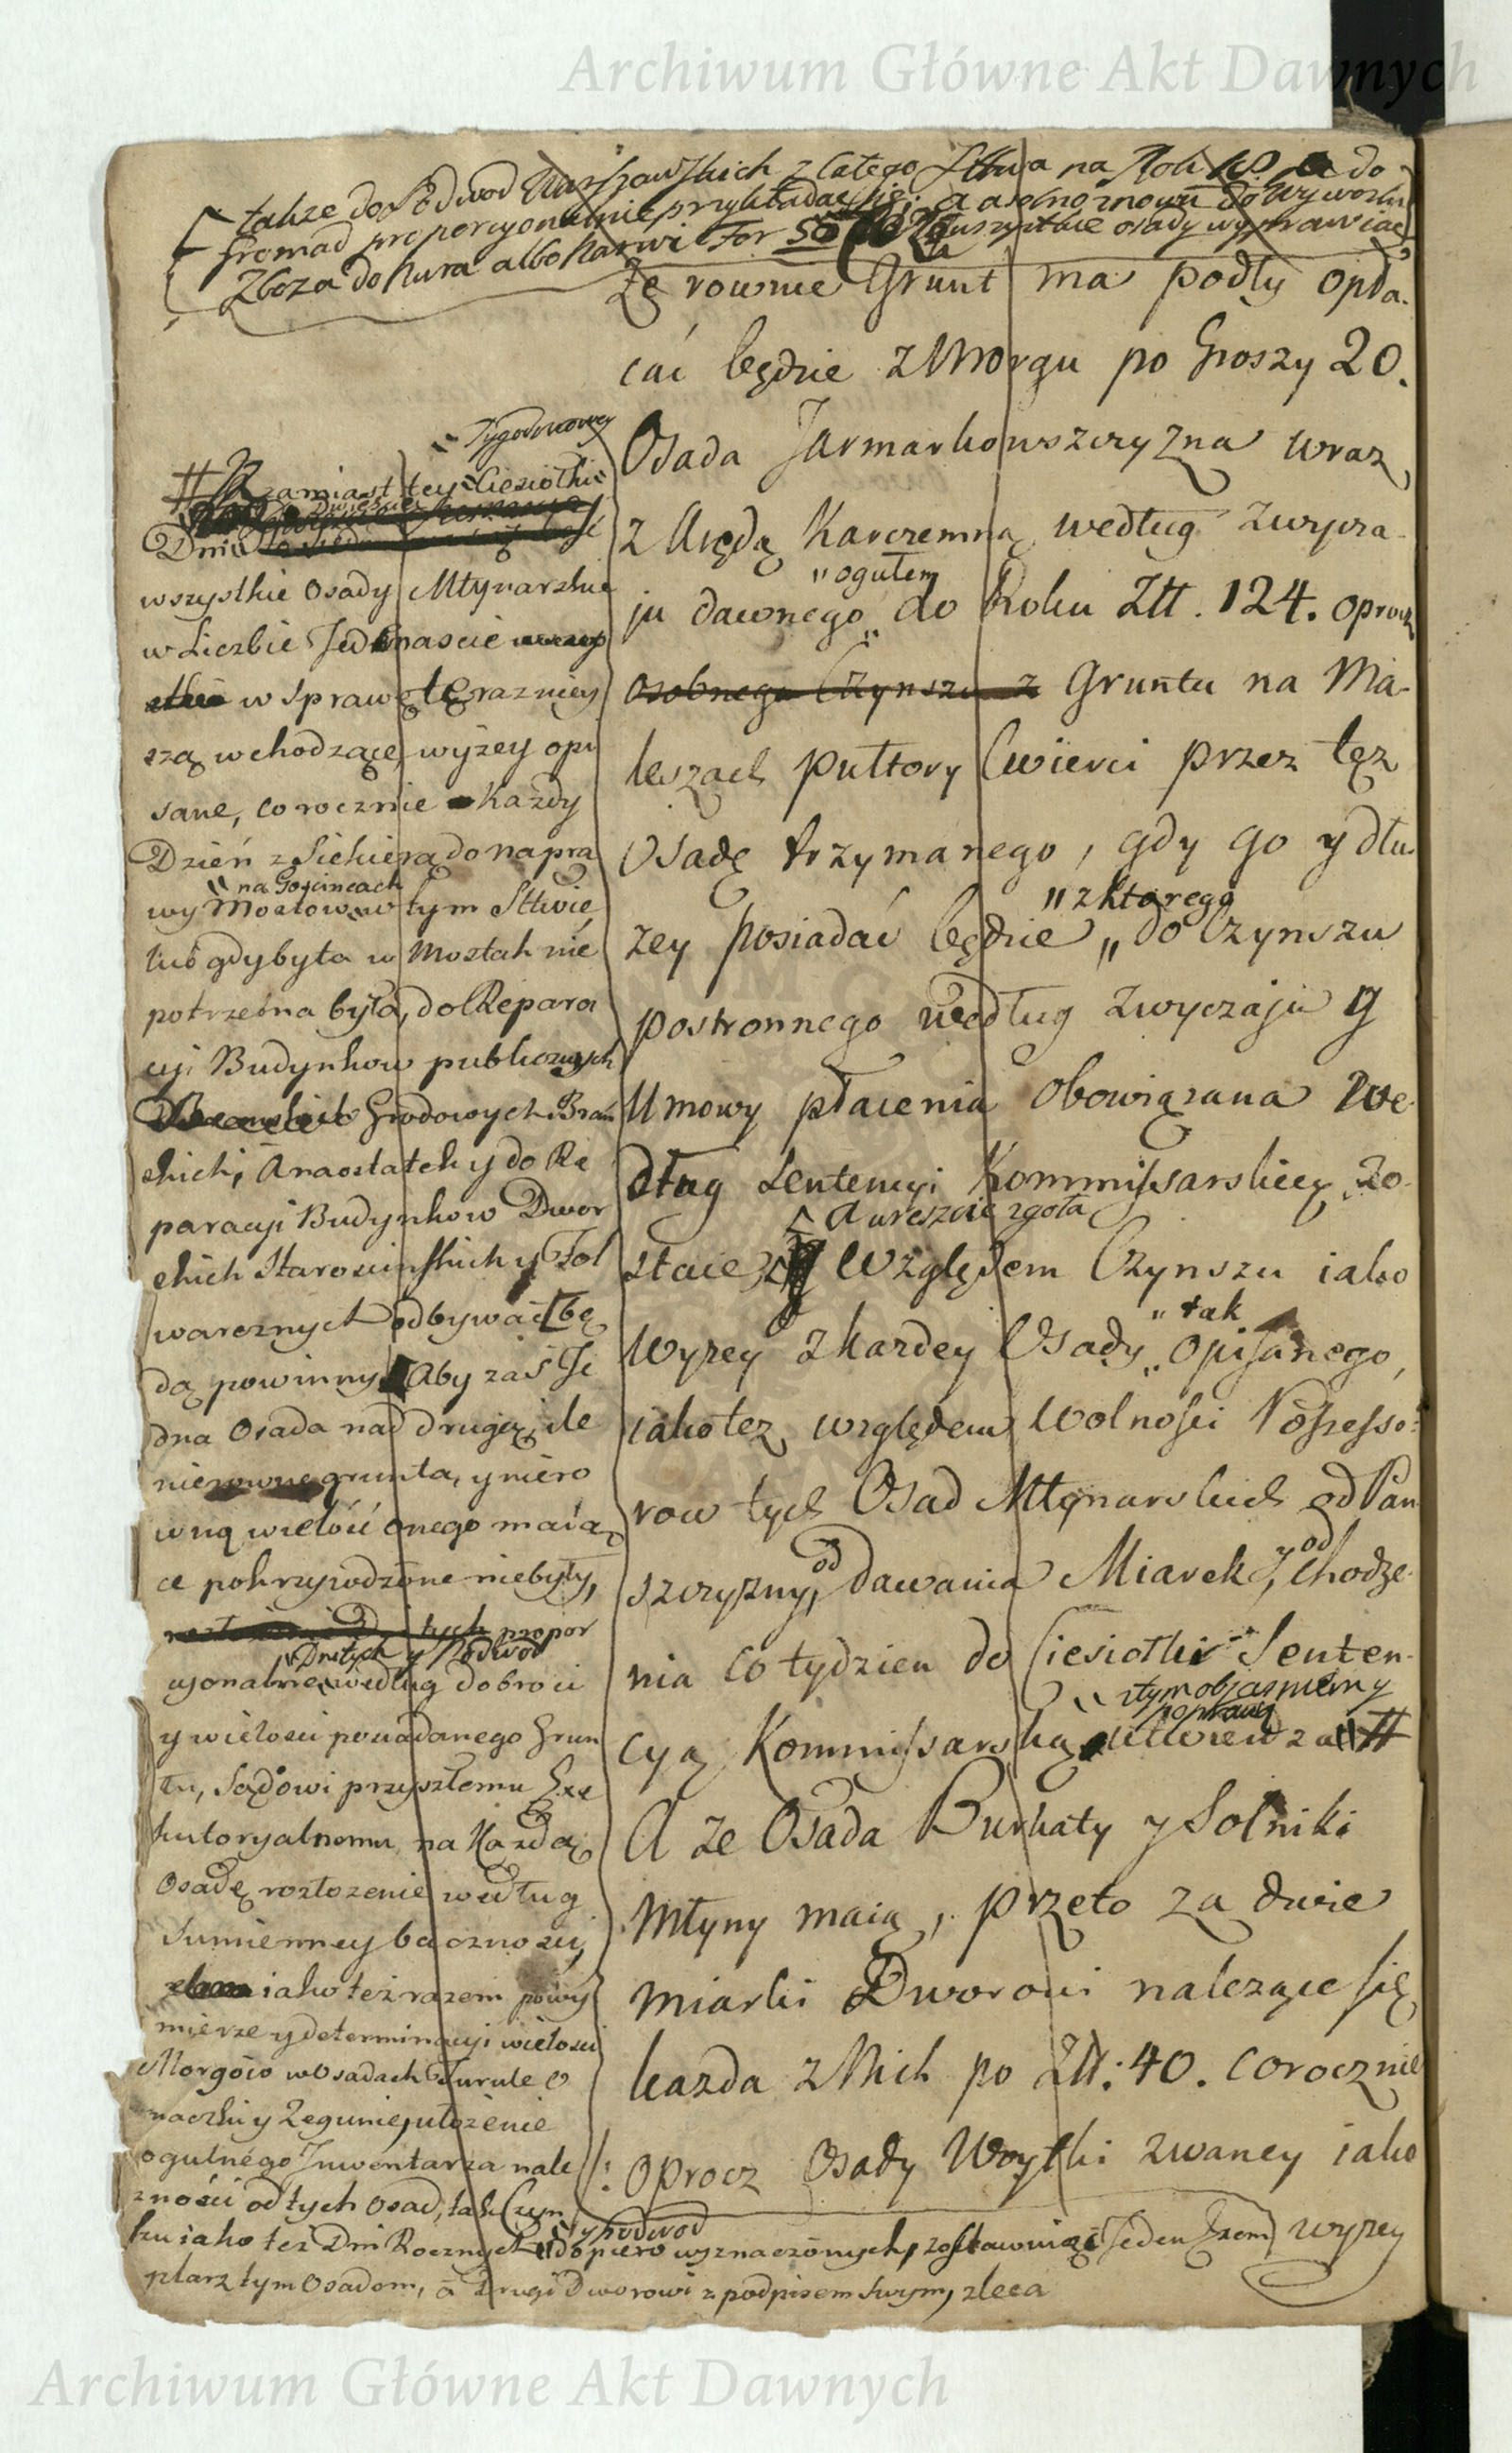 Archiwum Główne Akt Dawnych
także do Podwod Warszawskich z całego Sttwa na Rok do
Gromad proporcyonalnie przykładać się; a osobno znowu do wywozku
Zboża do Nura albo Narwi For 50 wszystkie osady wyprawiać
Ze rownie Grunt ma podły opła-
cać będzie z Morgu po Groszy 20.
Osada Jarmarkowszczyzna wraz
z Arędą Karczemną według zwycza-
"ogułem
ju dawnego do Roku Złł. 124. oprocz
osobnego Czynszu z Gruntu na Ma-
leszach pułtory Cwierci przez tęz
Osadę trzymanego, gdy go y dłu-
"z ktorego
zey posiadać będzie " do Czynszu
postronnego według zwyczaju y
Umowy płacenia obowiązana we-
dług Sentencyi Kommissarskiey zo-
A wreszcie zgoła
staie, Względem Czynszu iako
"tak
wyzey z kazdey Osady opisanego,
iako tez względem wolności Possesso-
row tych Osad Młynarskich od Pan-
szczyzny, od dawania Miarek, y od chodze-
nia co tydzien do Ciesiołki Senten-
z tym objasnieniem y
poprawą
cyą Kommissarską utwierdza #
A ze Osada Burkaty y Solniki
Młyny maią, przeto za dwie
miarki Dworowi nalezące się
kazda z Nich po Złł: 40. corocznie
oprocz Osady Woytki zwaney iako
wyzey
"Tygodniowey
# zamiast tey Ciesiołki
Dni
wszystkie Osady Młynarskie
w Liczbie Jedenascie
w sprawę terazniey
szą wchodzące, wyżey opi
sane, corocznie Kazdy
Dzień z Siekierą do napra
"na Gościncach
wy Mostow w tym Sttwie,
lub gdyby ta w Mostach nie
potrzebna była, do Repara
cyi Budynkow publicznych
Grodowych Brań
skich, A naostatek y do Re
paracyi Budynkow Dwor
skich Staroscinskich y Fol
warcznych odbywać bę
dą powinny Aby zaś Je
dna Osada nad drugą, ile
nierowne grunta, y niero
wną wielość onego maią
ce pokrzywdzone niebyły,
tych propor
"Dni tych y Podwod
cyonalnie według dobroci
y wielości posiadanego Grun
tu, Sądowi przyszłemu Exe
kutoryalnemu, na Kazdą
Osadę rozłozenie według
Sumienney baczności,
iako też razem po wy
mierze y determinacyi wielosci
Morgów w Osadach Turule
y Zegunie, ułozenie
ogulnego Inwentarza nale
zności od tych Osad, tak Czyn
"y podwod
szu iako tez Dni Rocznych dopiero wyznaczonych, zostawuiąc Jeden Exem
plarz tym Osadom, a Drugi Dworowi z podpisem swym, zleca
Archiwum Główne Akt Dawnych